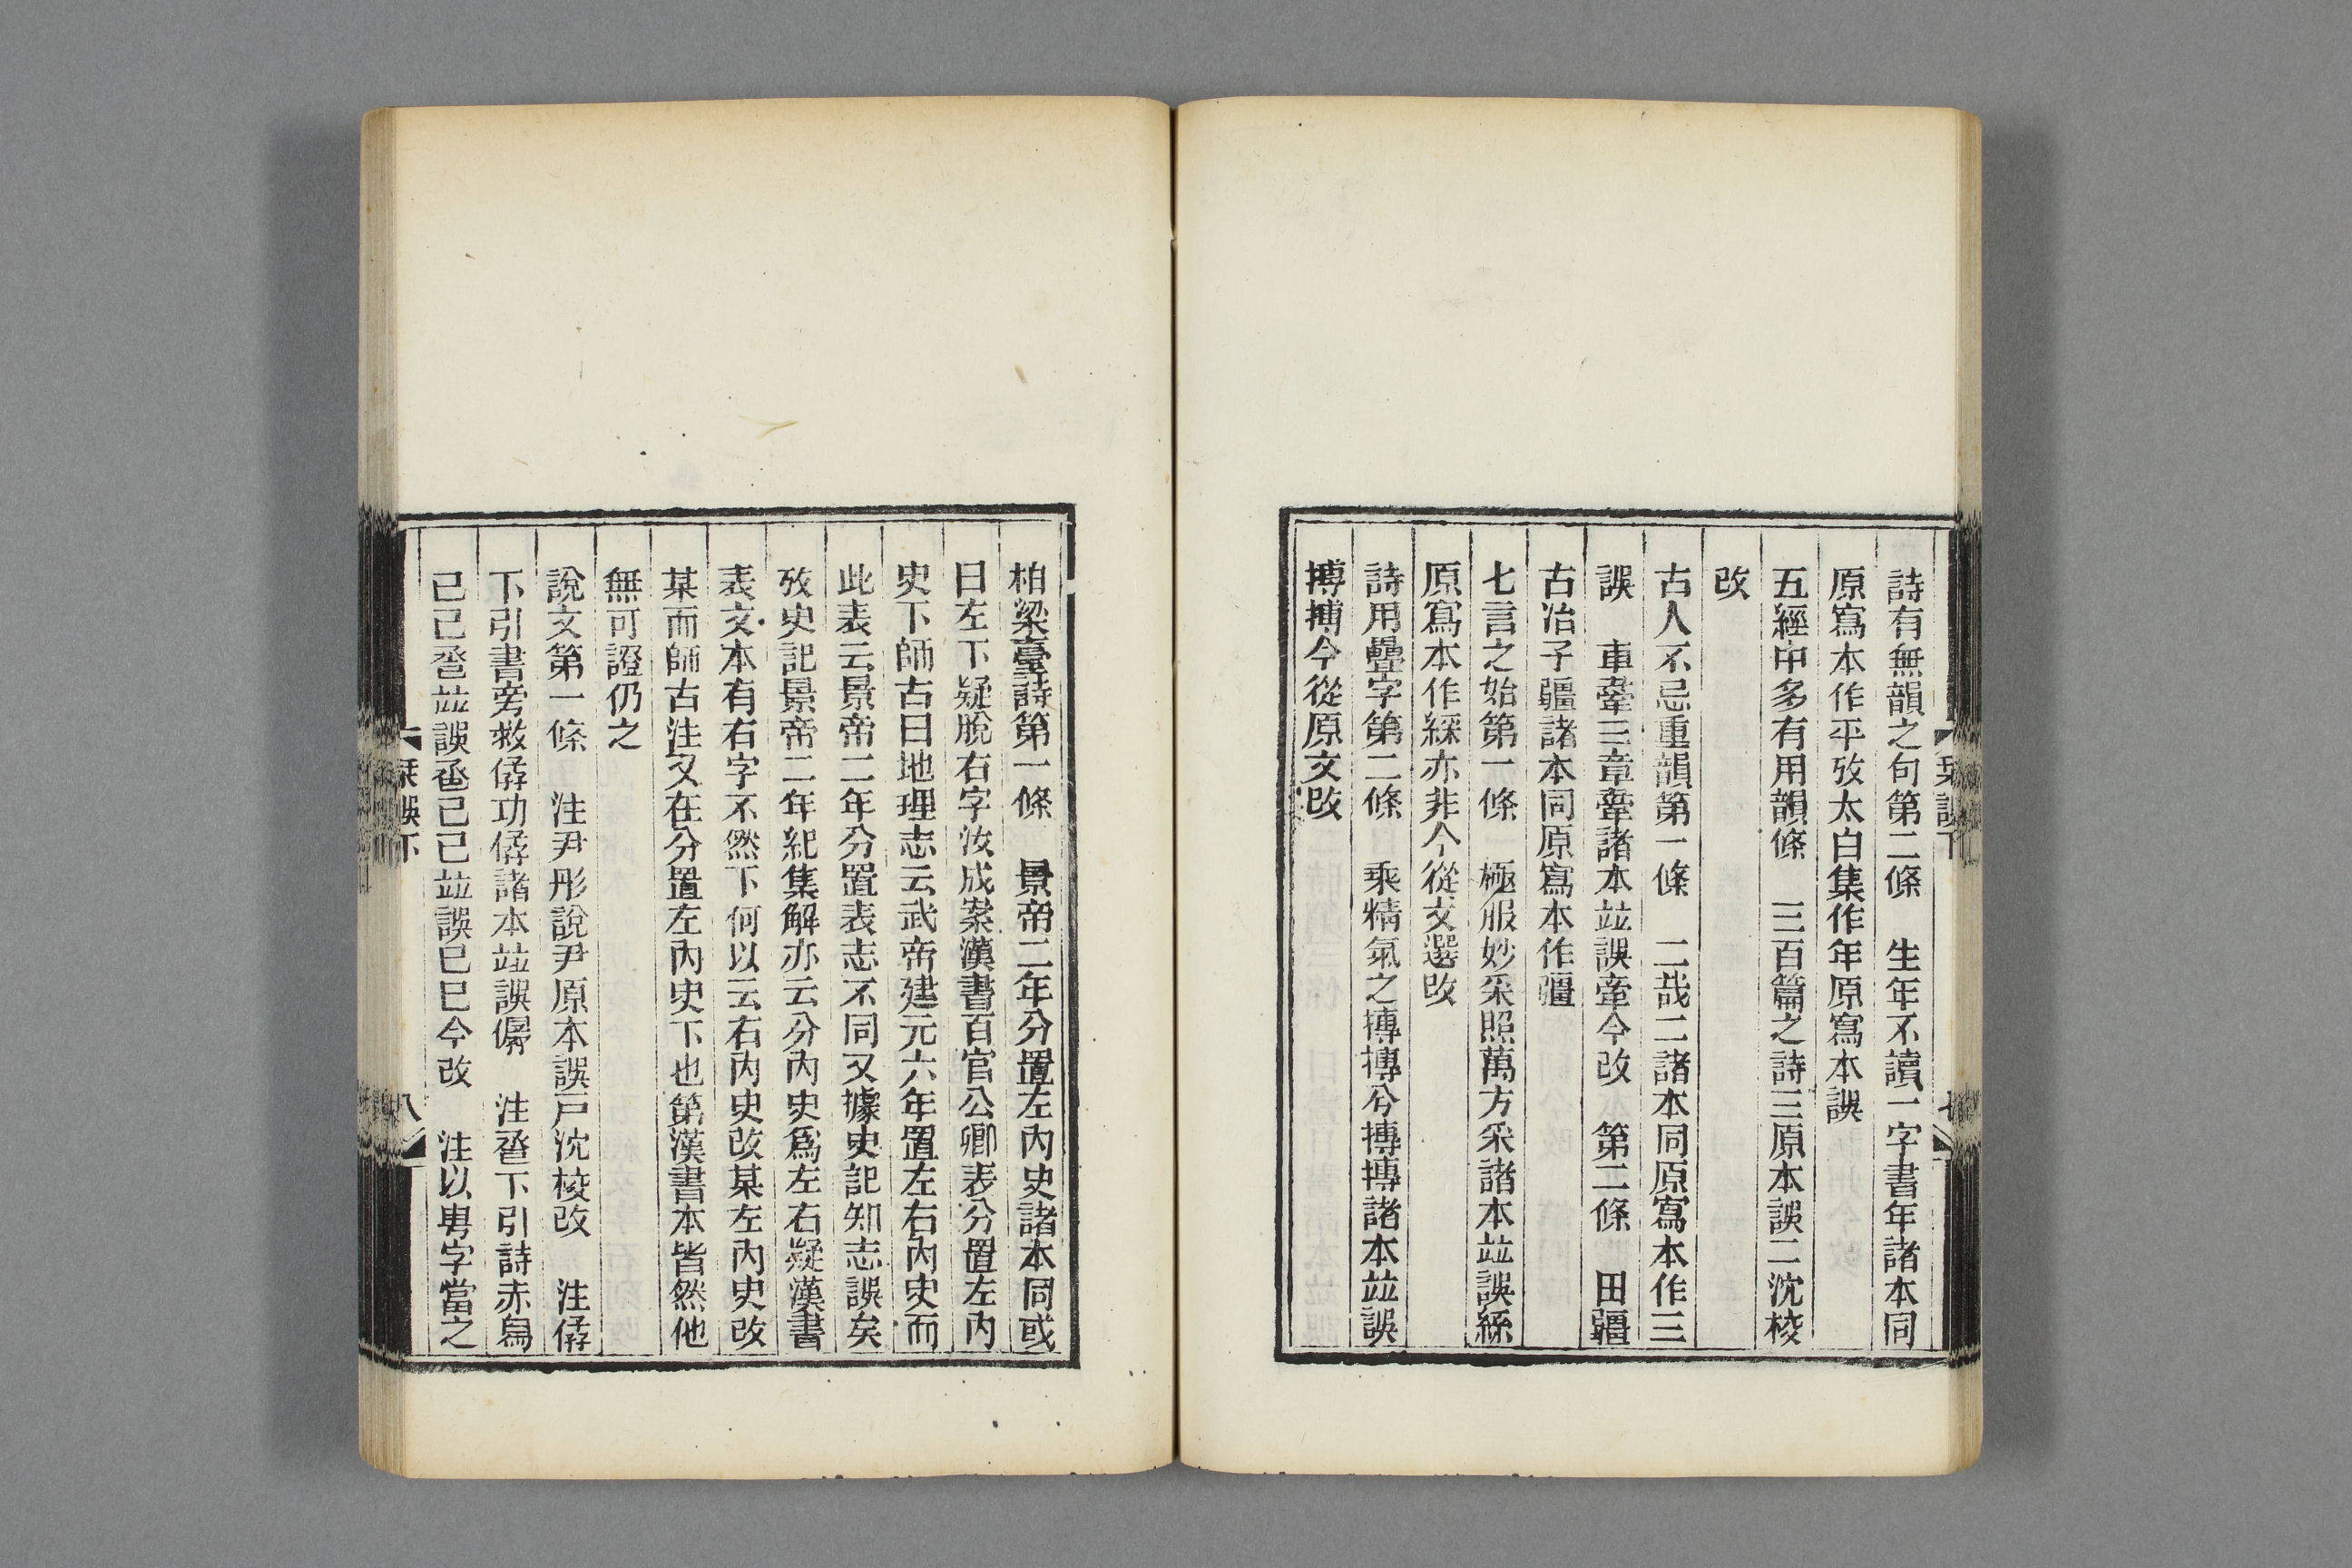 詩有無韻之句第二條　生年不讀一字書年諸本同
原寫本作平攷太白集作年原寫本誤
五經中多有用韻條　三百篇之詩三原本誤二沈校
改
古人不忌重韻第一條　二哉二諸本同原寫本作三
誤　車舝三章舝諸本竝誤牽今改　第二條　田疆
古冶子疆諸本同原寫本作彊
七言之始第一條　極服妙采照萬方采諸本竝誤絲
原寫本作綵亦非今從文選改
詩用疊字第二條　乘精氣之摶摶兮摶摶諸本竝誤
搏搏今從原文改
柏梁臺詩第一條　景帝二年分置左內史諸本同或
曰左下疑脫右字汝成案漢書百官公卿表分置左內
史下師古曰地理志云武帝建元六年置左右內史而
此表云景帝二年分置表志不同又據史記知志誤矣
攷史記景帝二年紀集解亦云分內史爲左右疑漢書
表文本有右字不然下何以云右內史改某左內史改
某而師古注又在分置左內史下也第漢書本皆然他
無可證仍之
說文第一條　注尹彤說尹原本誤戸沈校改　注㑞
下引書旁救㑞功㑞諸本竝誤僝　注巹下引詩赤舄
己己巹竝誤巹己己竝誤巳巳今改　注以㽕字當之
栞誤下
七
栞誤下
八